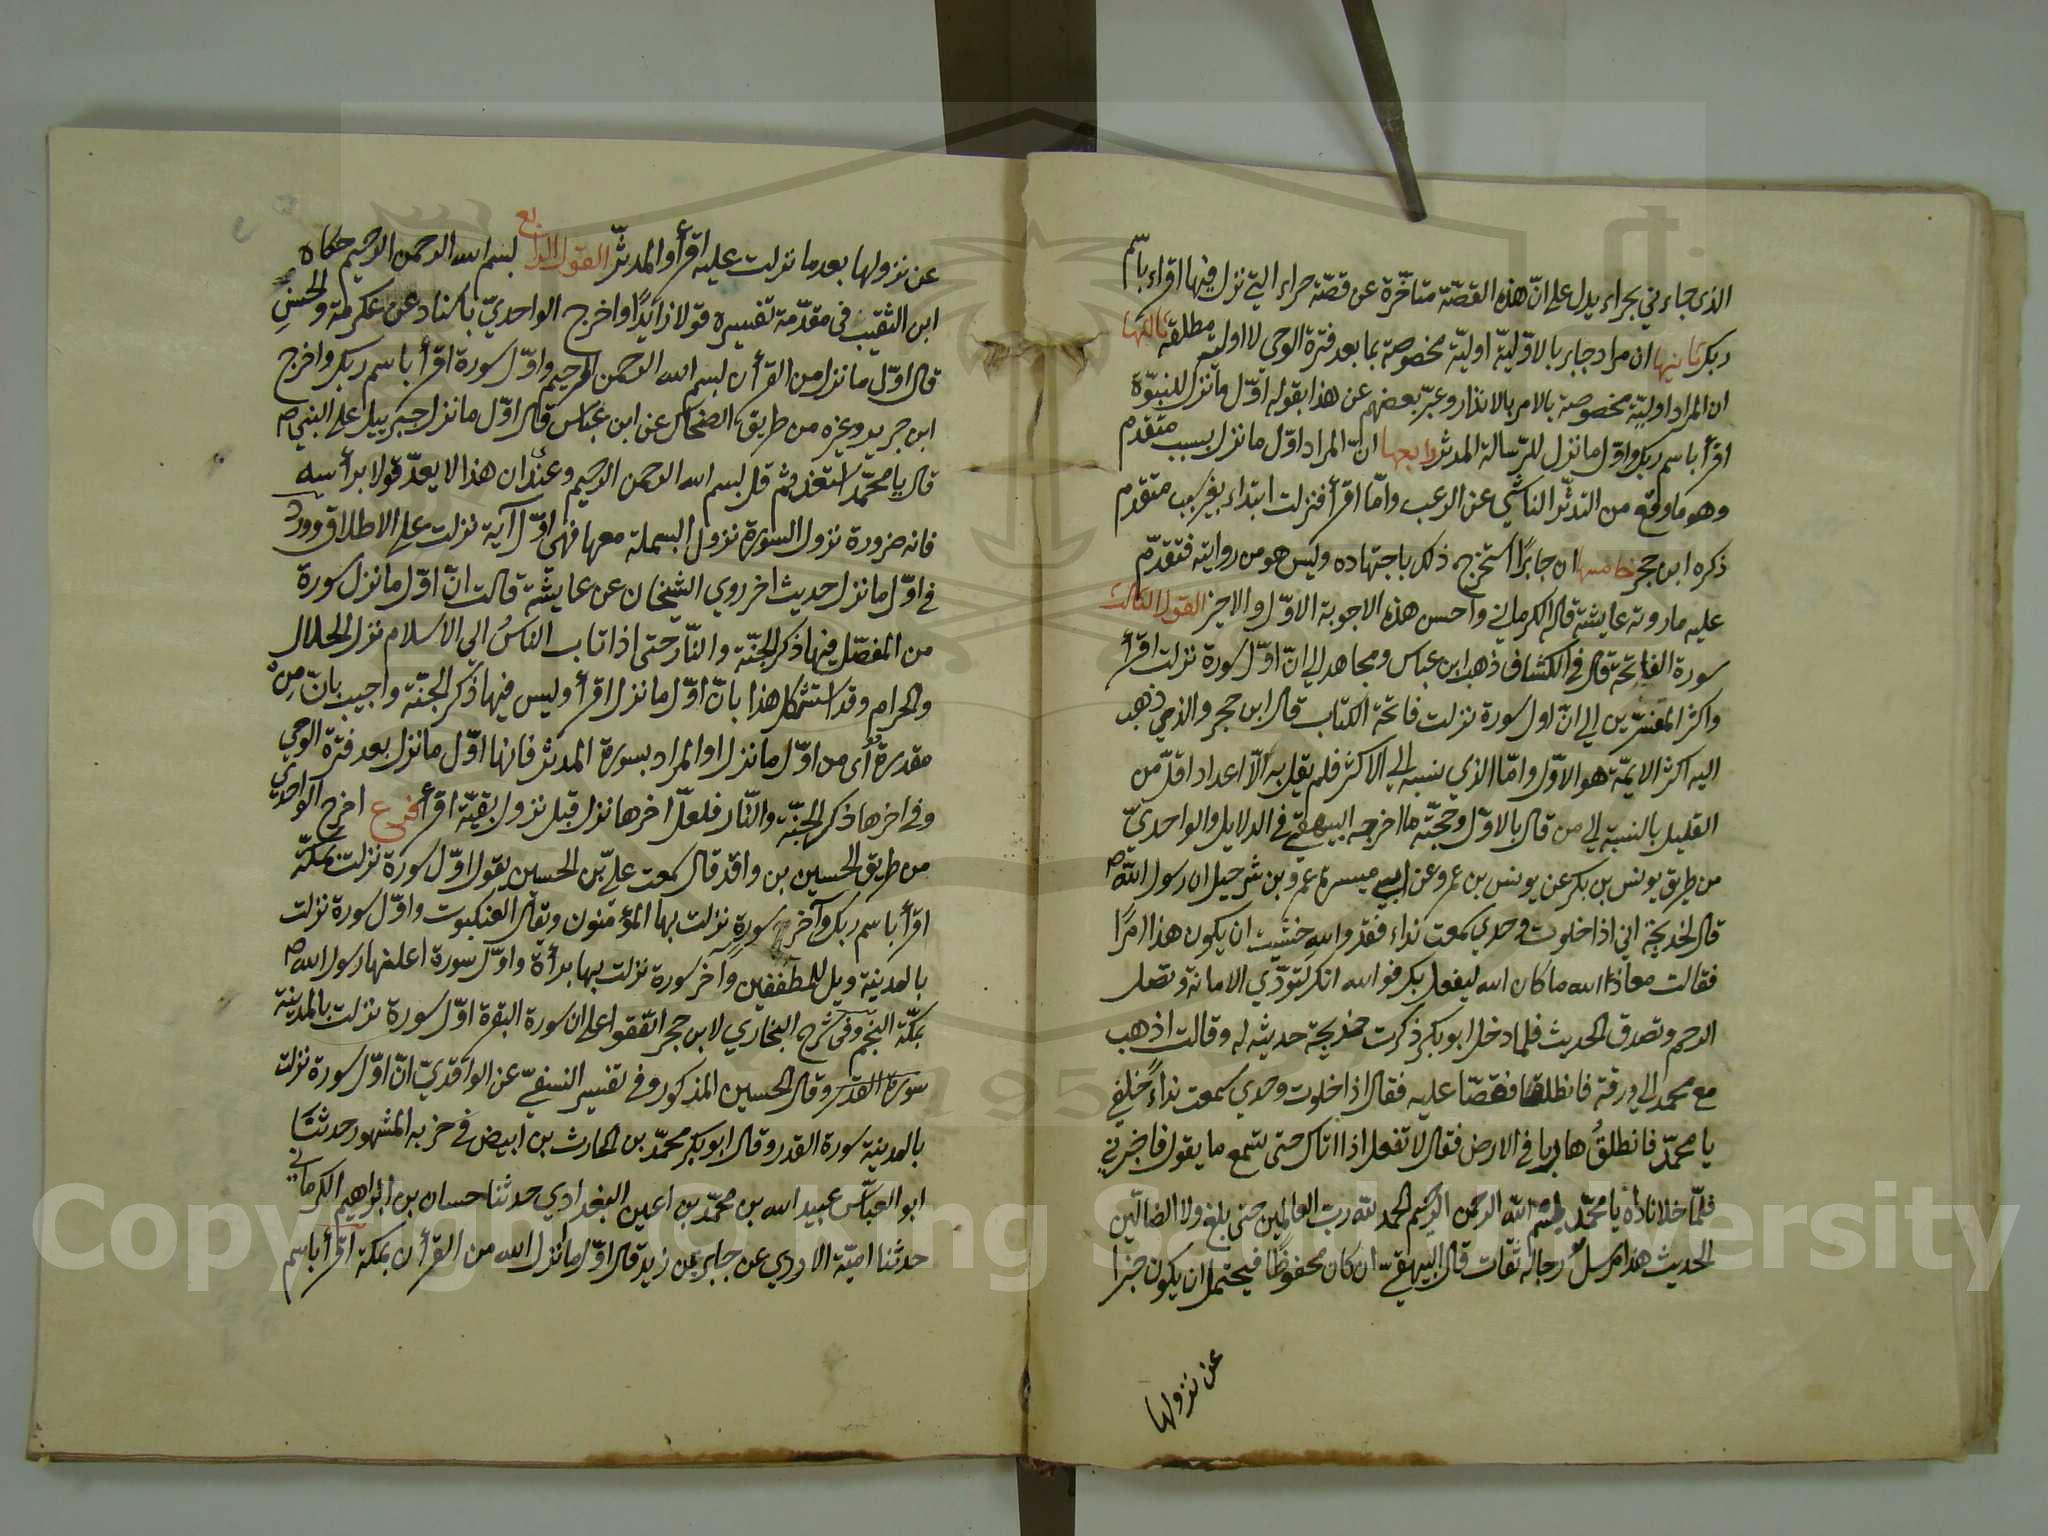 الذى جاءني بحراء يدل على انّ هذه القصّة متأخّرة عن قصّة حراء التي نزل فيها اقراء باسم
ربك ثانيها ان مراد جابر بالاوّليّة اوليّة مخصوصة بما بعد فترة الوحي لا اولية مطلقة ثالثها
ان المراد اوليّة مخصوصة بالامر بالانذار وعبّر بعضهم عن هذا بقوله اوّل ما نزل للنبوّة
اقرأ باسم ربك واوّل ما نزل للرّسالة المدثر رابعها انّ المراد اوّل ما نزل بسبب متقدم
وهو ما وقع من التدثّر الناشي عن الرعب وامّا اقرأ فنزلت ابتداء بغير سبب متقدم
ذكره ابن حجر خامسها ان جابرًا استخرج ذلك باجتهاده وليس هو من روايته فتقدّم
عليه ما روته عايشة قاله الكرماني واحسن هذه الاجوبة الاوّل والاخير القول الثالث
سورة الفاتحة قال في الكشاف ذهب ابن عباس ومجاهد الي انّ اوّل سورة نزلت اقرأ
واكثر المفسّرين الي انّ اول سورة نزلت فاتحة الكتاب قال ابن حجر والذي ذهب
اليه اكثر الايمّة هو الاوّل وامّا الذي نسبه الي الاكثر فلم يقل به الّا اعداد اقلّ من
القليل بالنسبة الي من قال بالاوّل وحجّته ما اخرجه البيهقي في الدلايل والواحديّ
من طريق يونس بن بكر عن يونس بن عمرو عن ابيه ميسرة عمرو بن شرحيل ان رسول الله ص
قال لخديجة اني اذا خلوت وحدي سمعت نداء فقد والله خشيت ان يكون هذا امرًا
فقالت معاذ الله ما كان الله ليفعل بك فوالله انك لتؤدّي الامانة وتصل
الرحم وتصدق الحديث فلما دخل ابو بكر ذكرت خديجة حديثه له وقالت اذهب
مع محمد الي ورقة فانطلقا فقصّا عليه فقال اذا خلوت وحدي سمعت نداءً خلفي
يا محمّد فانطلقُ هاربا في الارض فقال لا تفعل اذا اتاك حتى تسمع ما يقول فاخبرني
فلمّا خلا ناداه يا محمّد بسم الله الرحمن الرحيم الحمد لله ربّ العالمين حتى بلغ ولا الضالّين
الحديث هذا مرسلٌ رجاله ثقات قال البيهقيّ ان كان محفوظًا فيحتمل ان يكون خبرا
عن نزولها
عن نزولها بعد ما نزلت عليه اقرأ والمدثّر القول الرابع بسم الله الرحمن الرحيم حكاه
ابن النقيب في مقدّمة تفسيره قولا زايدًا واخرج الواحديّ باسناد عن عكرمة والحسن
قال اوّل ما نزل من القرأن بسم الله الرحمن الرحيم واوّل سورة اقرأ باسم ربك واخرج
ابن جرير وغيره من طريق الضحاك عن ابن عباس قال اوّل ما نزل جبرييل على النبي ص
قال يا محمّد استعذ ثم قل بسم الله الرحمن الرحيم وعندي ان هذا لا يعدّ قولا برأسه
فانه ضرورة نزول السورة نزول البسملة معها فهي اوّل آية نزلت على الاطلاق وورد
في اوّل ما نزل حديث اخر روي الشيخان عن عايشة قالت انّ اوّل ما نزل سورة
من المفصّل فيها ذكر الجنّة والنّار حتى اذا تاب الناسُ الي الاسلام نزل الحلال
والحرام وقد استشكل هذا بانّ اوّل ما نزل اقرأ وليس فيها ذكر الجنّة واجيب بانّ مِن
مقدرة أي من اوّل ما نزل او المراد بسورة المدثر فانها اوّل ما نزل بعد فترة الوحي
وفي اخرها ذكر الجنّة والنّار فلعلّ اخرها نزل قبل نزول بقيّة اقرأ فرع اخرج الواحدي
من طريق الحسين بن واقد قال سمعت عليّ بن الحسين يقول اوّل سورة نزلت بمكّة
اقرأ باسم ربك وآخر سورة نزلت بها المؤمنون ويقال العنكبوت واوّل سورة نزلت
بالمدينة ويل للمطففين وآخر سورة نزلت بها برأة واوّل سورة اعلنها رسول الله ص
بمكّة النجم وفي شرح البخاري لابن حجر اتفقوا على ان سورة البقرة اوّل سورة نزلت بالمدينة
سورة القدر وقال الحسين المذكور وفي تفسير النسفيّ عن الواقديّ انّ اوّل سورة نزلت
بالمدينة سورة القدر وقال ابو بكر محمّد بن الحارث بن ابيض في جزبه المشهور حدثنا
ابو العبّاس عبيد الله بن محمّد بن اعين البغدادي حدثنا حسان بن ابراهيم الكرماني
حدثنا اميّة الازدي عن جابر بن زيد قال اوّل ما نزل الله من القرأن بمكة اقرأ باسم
Copyright © King Saud University
1957